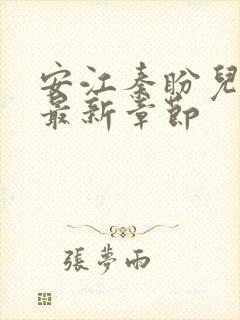 安江秦盼兒
最新章節
張夢雨